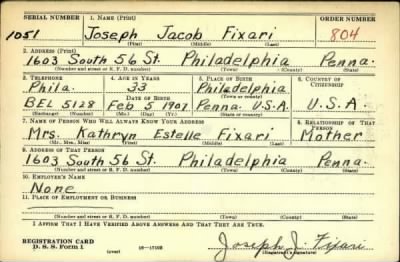 SERIAL NUMBER 1. NAME (Print) ORDER NUMBER
1051 Joseph Jacob Fixari 804
(First) (Middle) (Last)
2. ADDRESS (Print)
1603 South 56 St. Philadelphia Penna.
(Number and street or R. F. D. number) (Town) (County) (State)
3. TELEPHONE 4. AGE IN YEARS 5. PLACE OF BIRTH 6. COUNTRY OF CITIZENSHIP
Phila. 33 Philadelphia
DATE OF BIRTH
BEL 5128 Feb 5 1907 Penna. U.S.A. U.S.A.
(Exchange) (Number) (Mo.) (Day) (Yr.) (State or country)
7. NAME OF PERSON WHO WILL ALWAYS KNOW YOUR ADDRESS 8. RELATIONSHIP OF THAT PERSON
Mrs. Kathryn Estelle Fixari Mother
(Mr., Mrs., Miss) (First) (Middle) (Last)
9. ADDRESS OF THAT PERSON
1603 South 56 St. Philadelphia Penna.
(Number and street or R. F. D. number) (Town) (County) (State)
10. EMPLOYER'S NAME
None
11. PLACE OF EMPLOYMENT OR BUSINESS
(Number and street or R. F. D. number) (Town) (County) (State)
I AFFIRM THAT I HAVE VERIFIED ABOVE ANSWERS AND THAT THEY ARE TRUE.
REGISTRATION CARD
D. S. S. Form 1 (over) Joseph J. Fixari
(Registrant's signature)